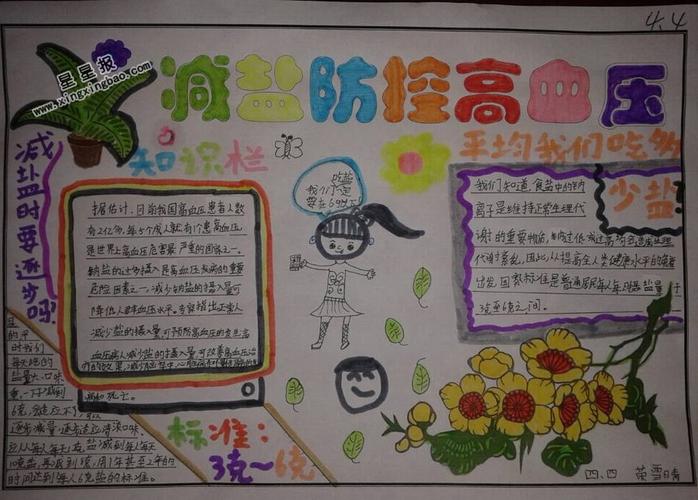 4.4
星星报
www.xingxingbao.com
减盐防控高血压
知识栏
平均我们吃多
少盐?
减盐时要逐步吗
吃盐
我们一定
要在6克以
据估计,目前我国高血压患者人数
有2亿多,每5个成人就有1个患高血压,
是世界上高血压危害最严重的国家之一。
钠盐的过多摄入是高血压发病的重要
危险因素之一,减少钠盐的摄入量可
降低人群血压水平。专家指出正常人
减少盐的摄入量可预防高血压的发生;高
血压病人减少盐的摄入量,可改善高血压治
和死亡。
我们知道,食盐中的钠
离子是维持正常生理代
谢的重要物质
代谢紊乱,因此从提高全人类健康水平的需要
出发,国家标准是普通居民每人每日摄盐量
3克至6克之间。
标准:
3克~6克
的平
时我们
每天吃的
盐量大、口味
重,一下子减到
6克
应从每人每天12克盐减到每人每天
10克盐,再减到8克,用1年甚至2年的
时间达到每人6克盐的标准。
四、四